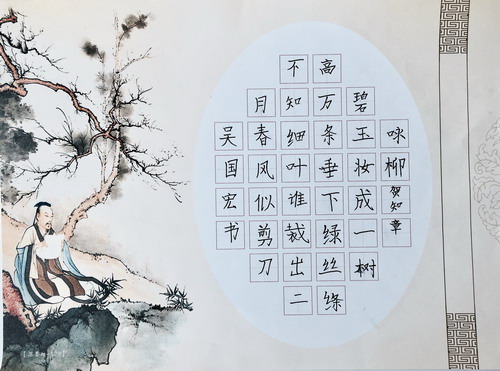 咏柳贺知章
碧玉妆成一树
高万条垂下绿丝绦
不知细叶谁裁出二
月春风似剪刀
吴国宏书